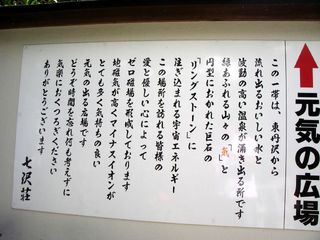 この一帯は、東丹沢から
流れ出るおいしい水と
波動の高い温泉が湧き出る所です
緑あふれる山々の「気」と
円型におかれた巨石の
「リングストーン」に
注ぎ込まれる宇宙エネルギー
この場所を訪れる皆様の
愛と優しい心によって
ゼロ磁場を形成しております
地磁気が高くマイナスイオンが
とても多く気持ちの良い
元気の出る広場です
どうぞ時間を忘れ何も考えずに
気楽におくつろぎください
ありがとうございます
七沢荘
↑元気の広場